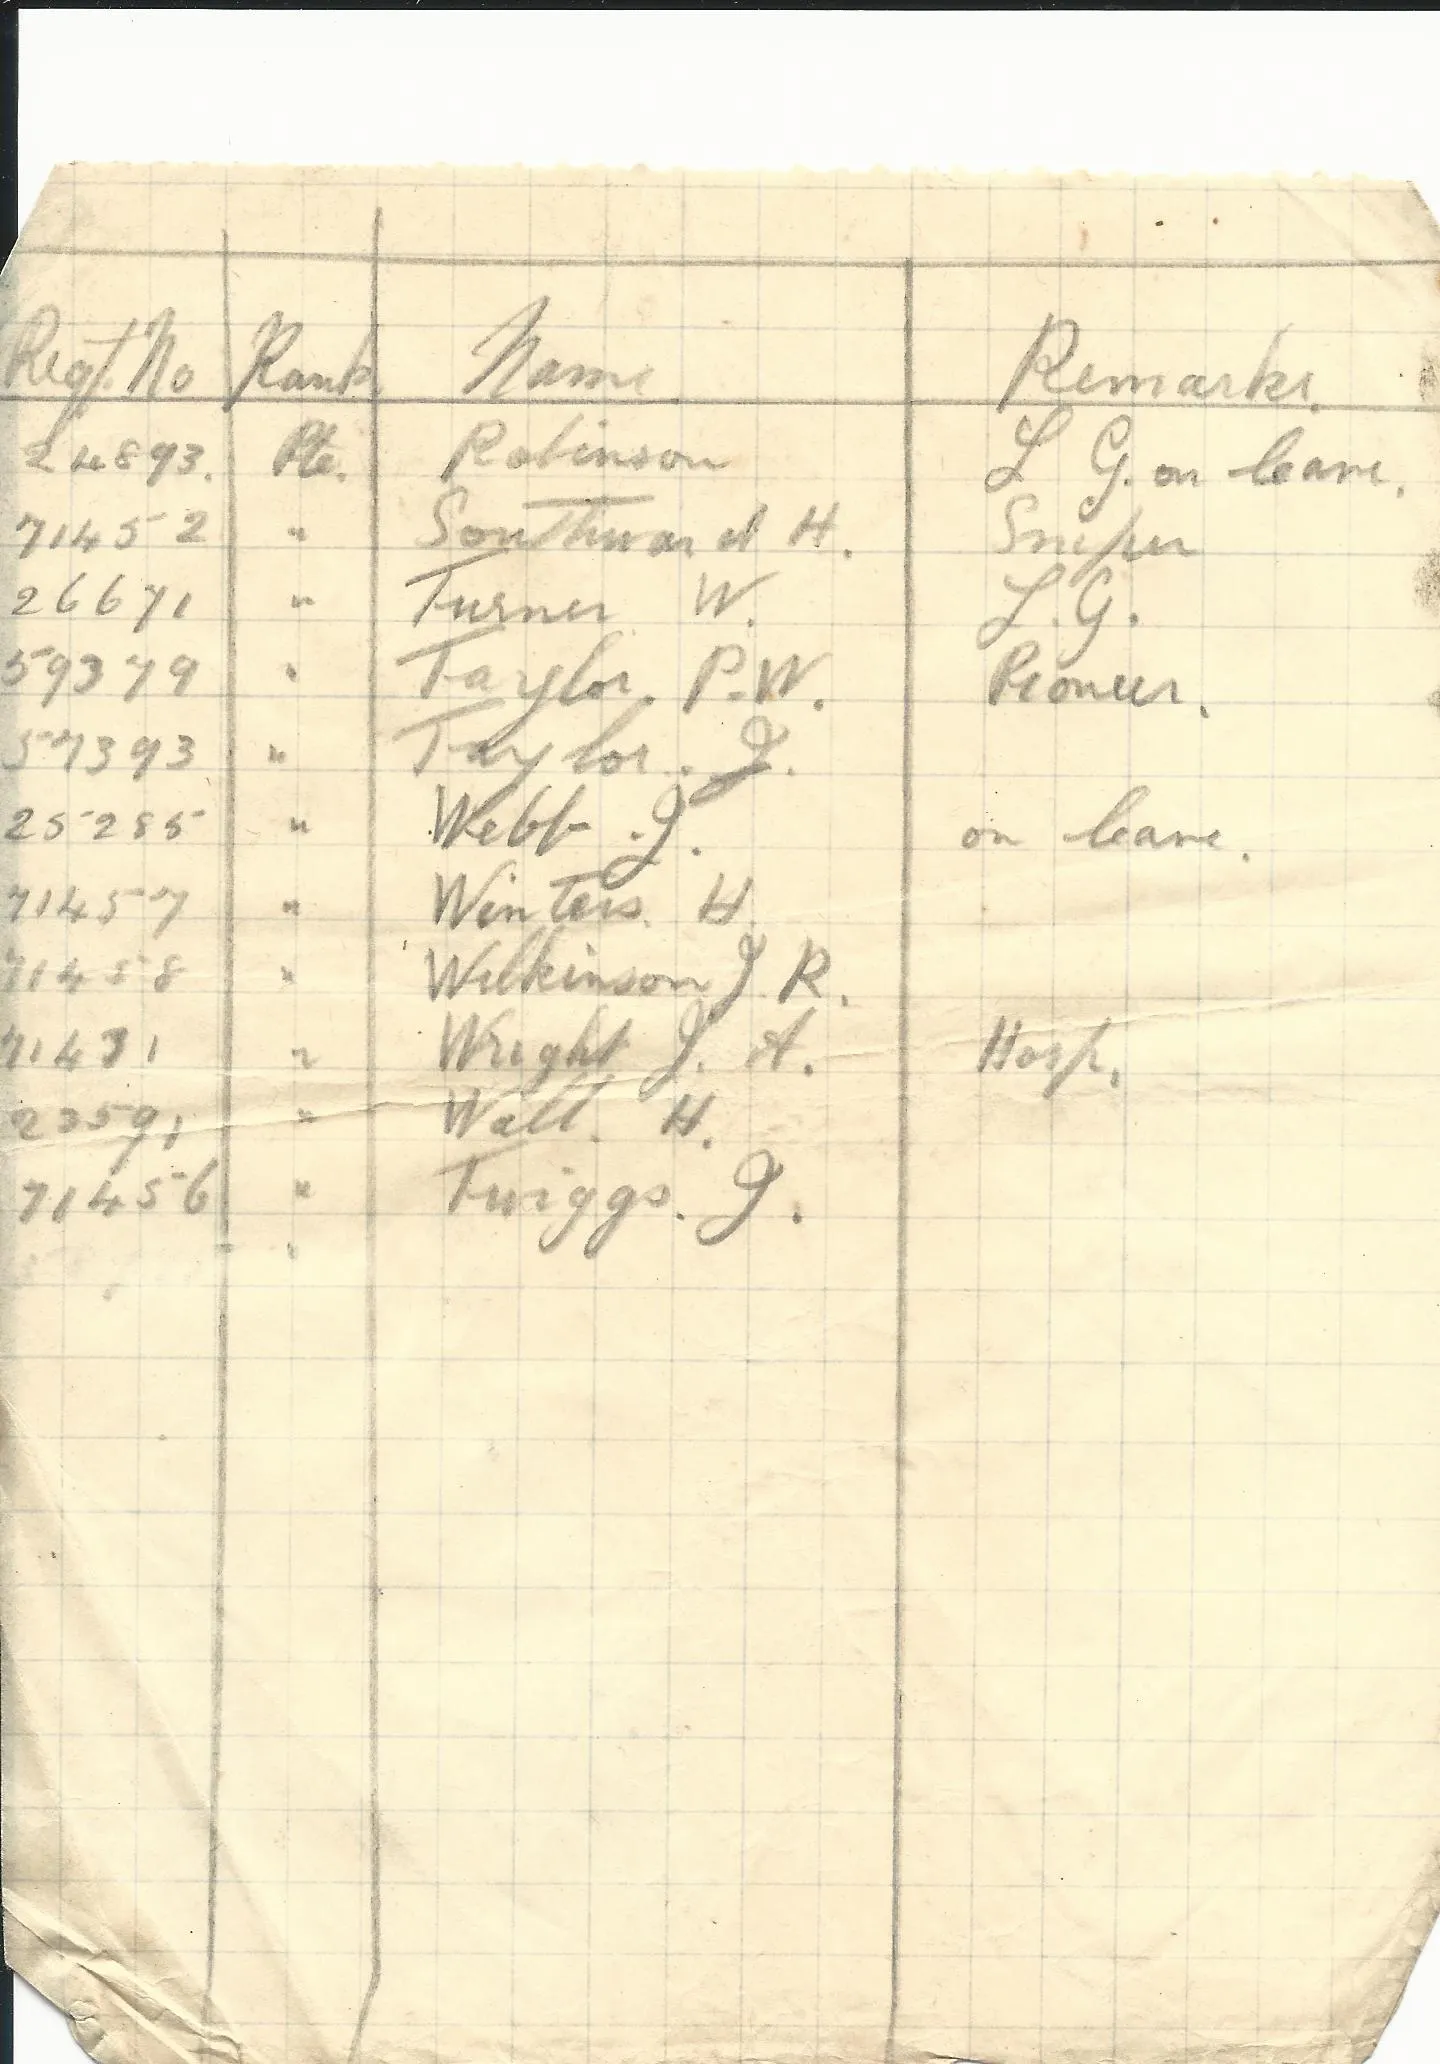 Regt. No Rank Name Remarks.
24893. Pte. Robinson L G. on leave.
71452 " Southward H. Sniper
26671 " Turner W. L. G.
59379 " Taylor. P. W. Pioneer.
57393 " Taylor. J.
25285 " Webb J. on leave.
71457 " Winters. H.
71458 " Wilkinson J R.
71431 " Wright J. A. Hosp.
" H.
71456 " Twiggs. J.